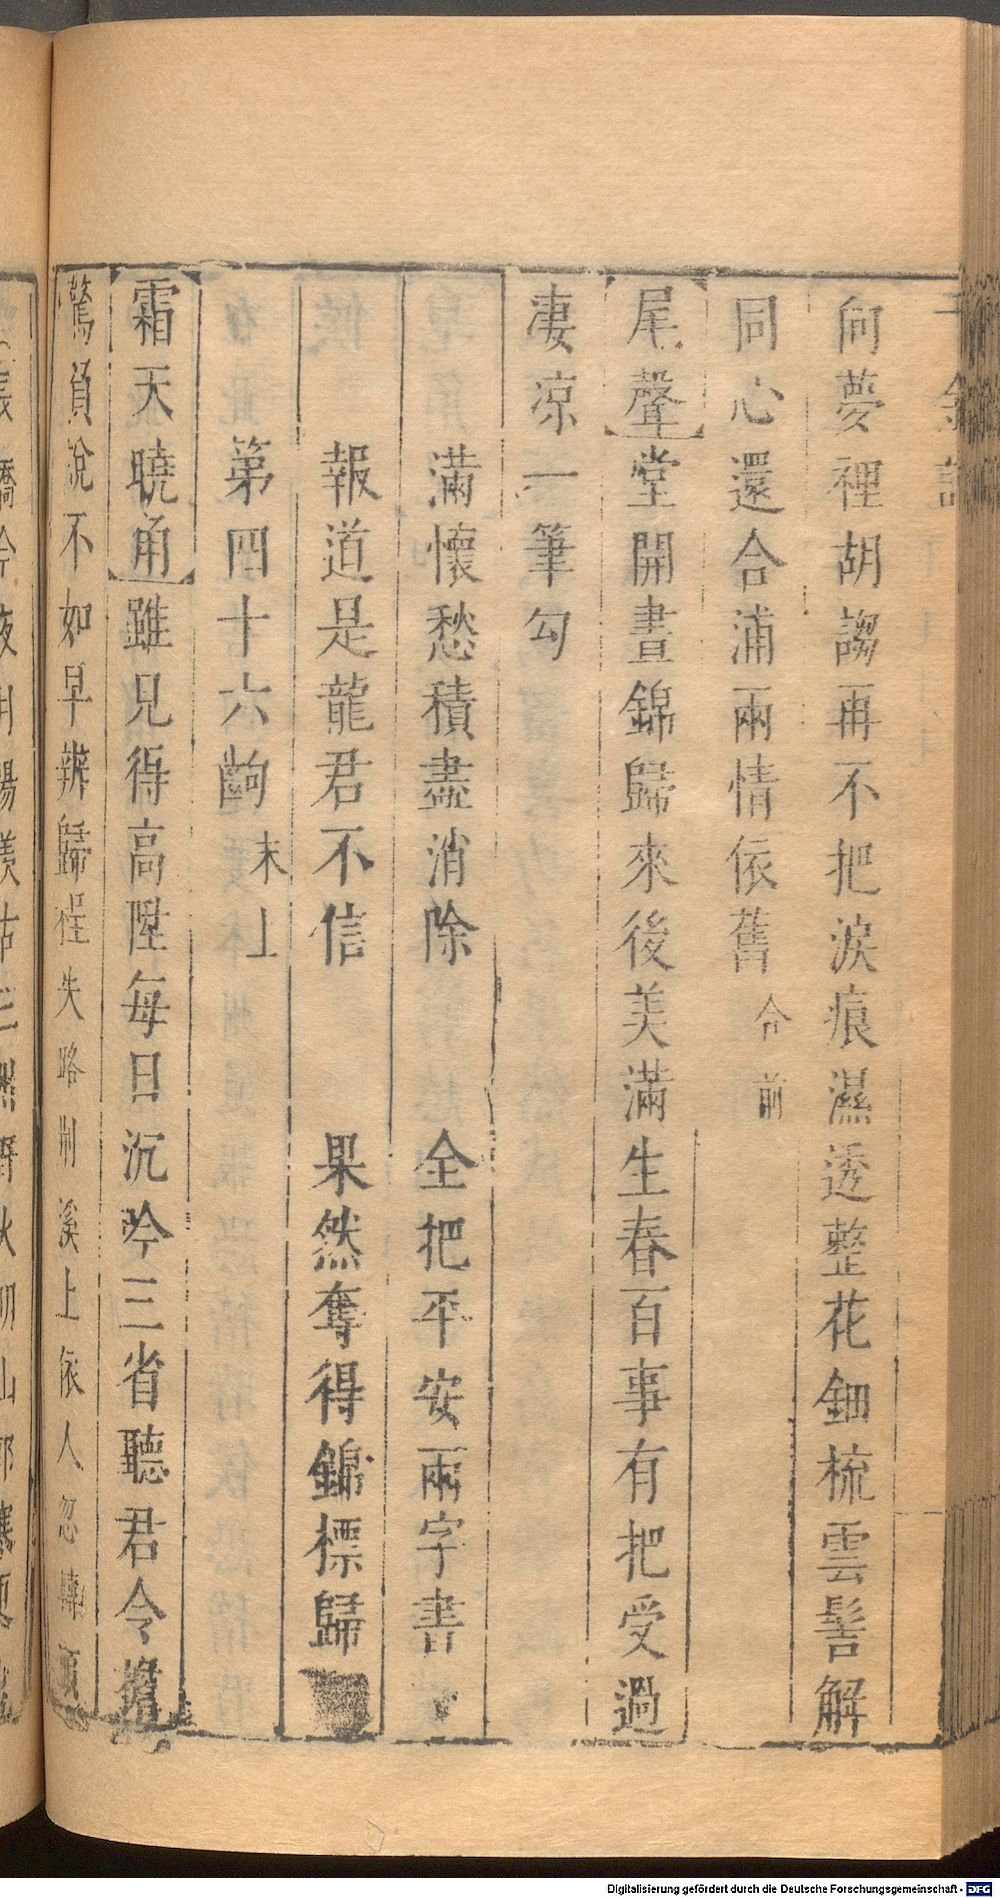 千金記
向夢裡胡謅再不把淚痕濕透整花鈿梳雲髻解
同心還合浦兩情依舊 合前
尾聲堂開晝錦歸來後美滿生春百事有把受過
凄凉一筆勾
滿懷愁積盡消除 全把平安兩字書
報道是龍君不信 果然奪得錦標歸
第四十六齣 末上
霜天曉角雖兄得高陞每日沉吟三省聽君令
說不如早辦歸程失路荆溪上依人忽轉
Digitalisierung gefördert durch die Deutsche Forschungsgemeinschaft - DFG